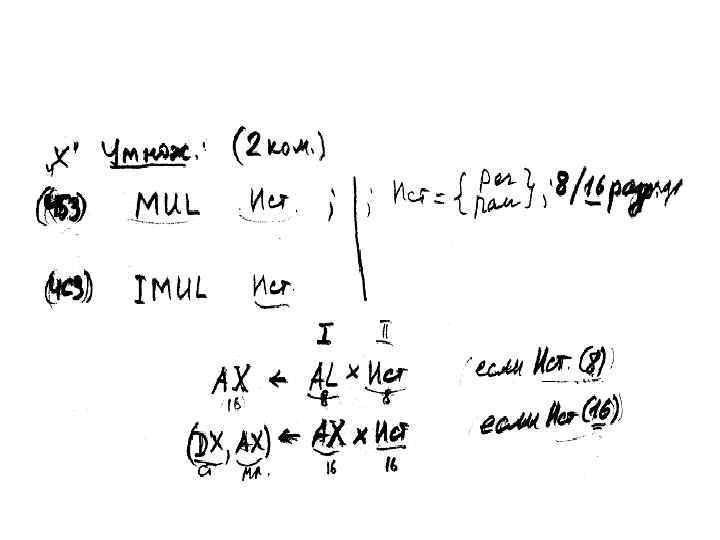 „X" Умнож.: (2 ком.)
(ЧБЗ) MUL Ист. ; ; Ист = { рег пам } ; 8/16 разряд
(ЧСЗ) IMUL Ист
I II
AX ← AL × Ист если Ист. (8)
16 8 8
(DX, AX) ← AX × Ист если Ист (16)
ст мл. 16 16